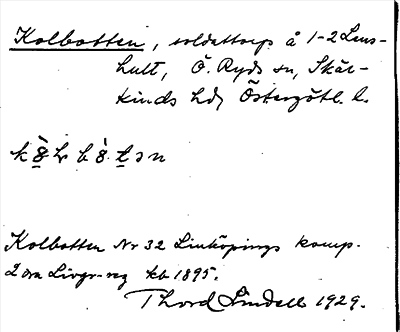 Kolbotten, soldattorp å 1-2 Lens-
hult, Ö. Ryds sn, Skär-
kinds hd, Östergötl. l.
Kolbotten Nr 32 Linköpings komp.
2 dra Livgr-reg kb 1895.
Thord Lindell 1929.